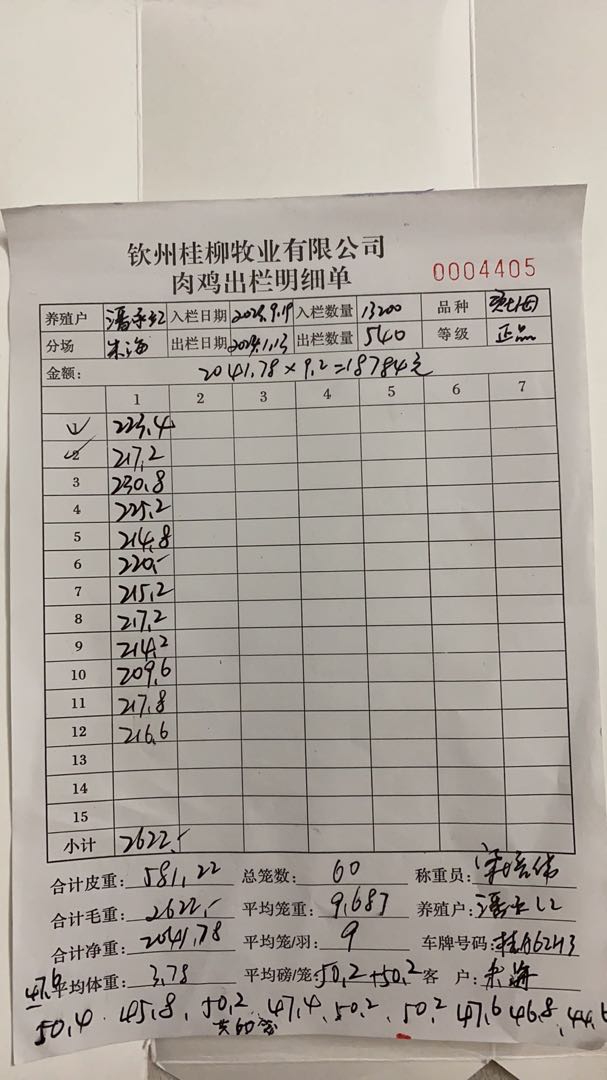 钦州桂柳牧业有限公司
肉鸡出栏明细单 0004405
养殖户 入栏日期 入栏数量 13200 品种
分场 朱海 出栏日期 出栏数量 540 等级 正品
金额: 2041.78 × 9.2 = 18784元
1 2 3 4 5 6 7
1 223.4
2 217.2
3 230.8
4 225.2
5 214.8
6 220.-
7 215.2
8 217.2
9 214.2
10 209.6
11 217.8
12 216.6
13
14
15
小计 2622.-
合计皮重: 581.22 总笼数: 60 称重员:
合计毛重: 2622.- 平均笼重: 9.687 养殖户:
合计净重: 2041.78 平均笼/羽: 9 车牌号码:
平均体重: 3.78 平均磅/笼: 50.2+50.2 客 户: 朱海
47.6
50.4 45.8、50.2、47.4、50.2、50.2 47.6 46.8、44.6
共60笼